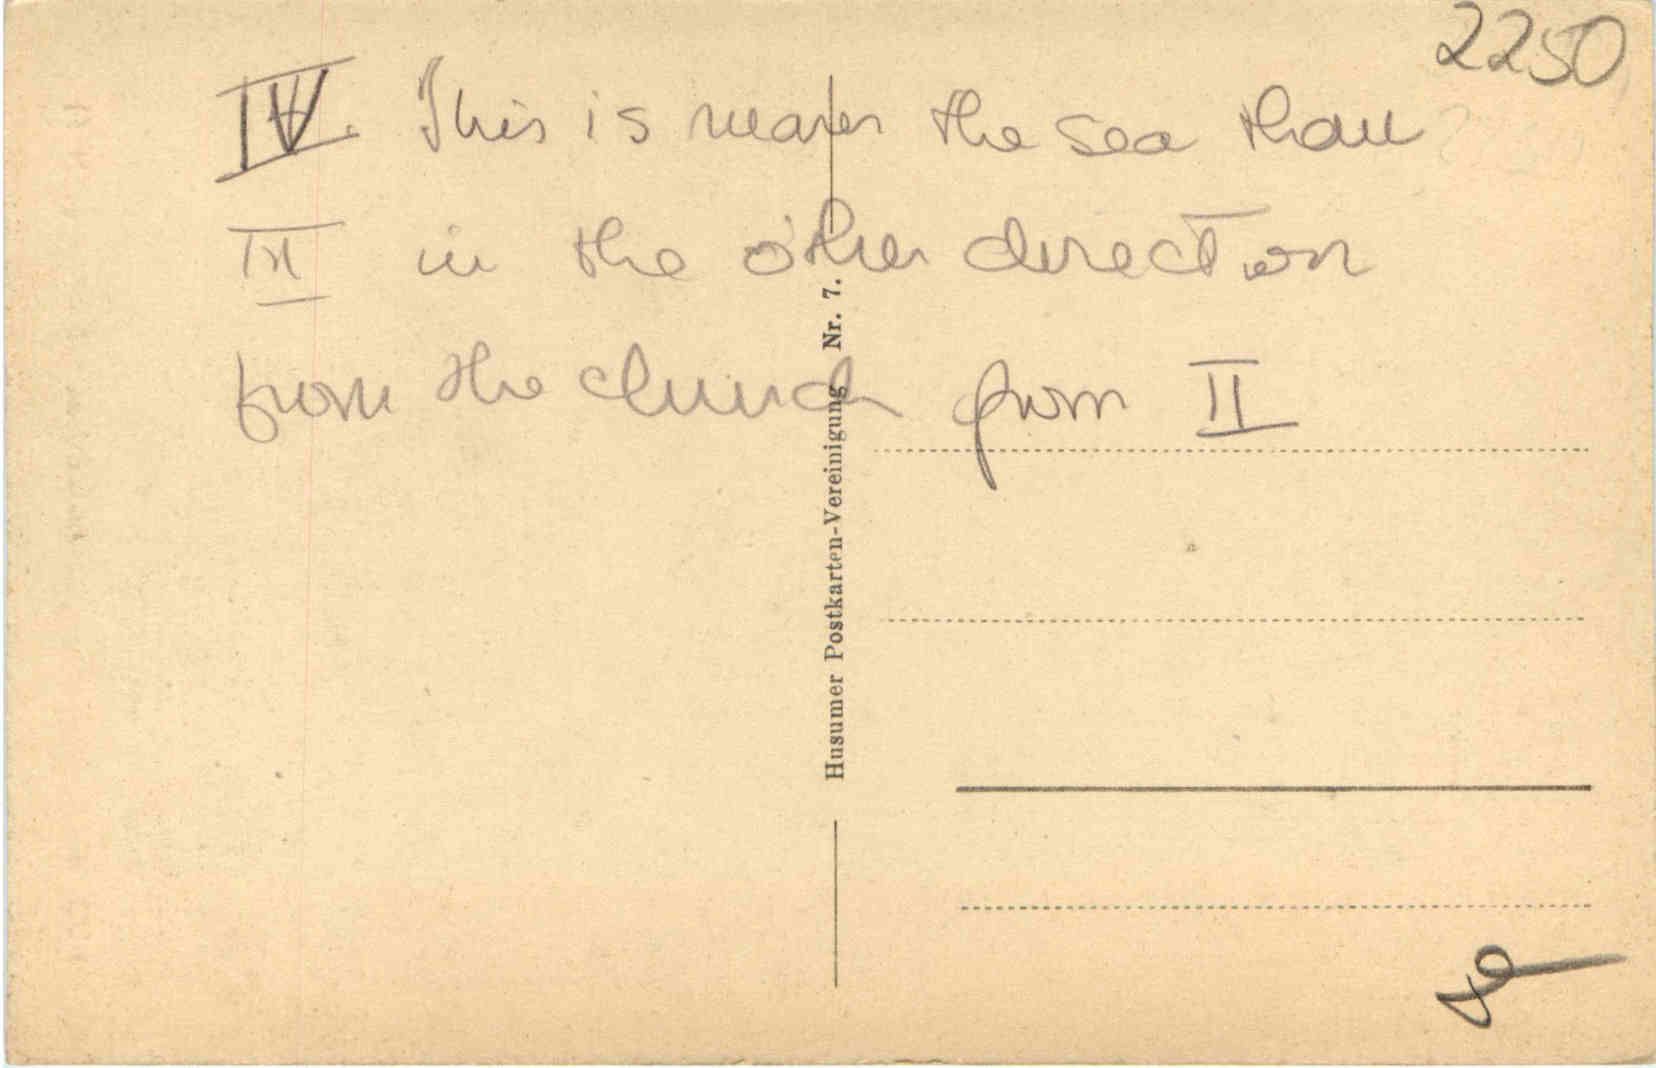 2250
IV. This is nearer the sea than
III in the other direction
from the church from II
Husumer Postkarten-Vereinigung Nr. 7.